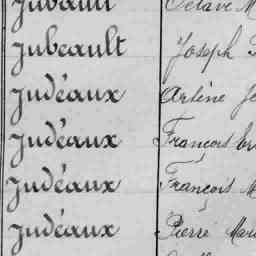 Octave M
Jubeault Joseph
Judéaux Arsène Je
Judéaux François
Judéaux François M
Judéaux Pierre Mari